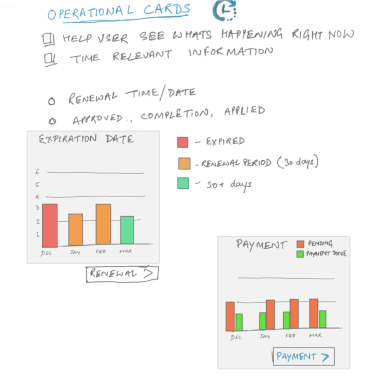 OPERATIONAL CARDS
HELP USER SEE WHATS HAPPENING RIGHT NOW
TIME RELEVANT INFORMATION
RENEWAL TIME/DATE
APPROVED, COMPLETION, APPLIED
EXPIRATION DATE
6
5
4
3
2
1
DEC JAN FEB MAR
RENEWAL >
- EXPIRED
- RENEWAL PERIOD (30 days)
- 30+ days
PAYMENT
PENDING
PAYMENT DONE
DEC JAN FEB MAR
PAYMENT >